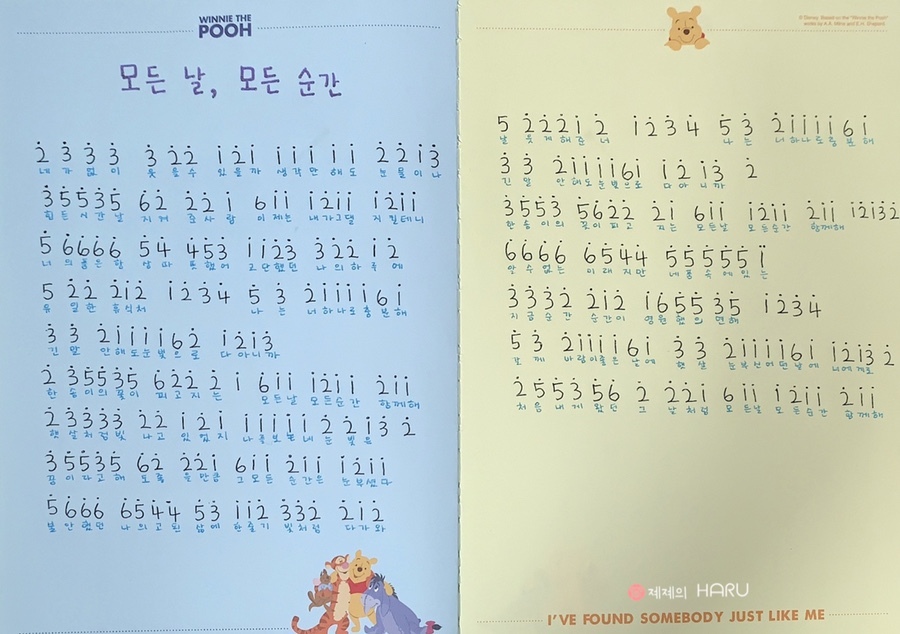 WINNIE THE
POOH
모든 날, 모든 순간
2̇ 3̇ 3̇ 3̇ 3̇ 2̇2̇ 1̇2̇1̇ 1̇1̇1̇ 1̇ 1̇ 2̇2̇1̇3̇
네 가 없 이 웃 을수 있을까 생각만 해 도 눈물이나
3̇5̇5̇3̇5̇ 6̇2̇ 2̇2̇1̇ 61̇1̇ 1̇2̇1̇1̇ 2̇1̇1̇
힘든 시간날 지켜 준사랑 이제는 내가그댈 지킬테니
5̇ 6̇6̇6̇6̇ 5̇4̇ 4̇5̇3̇ 1̇1̇2̇3̇ 3̇2̇2̇ 1̇2̇
너 의품은항 상따 뜻했어 고단했던 나의하 루에
5 2̇2̇ 2̇1̇2̇ 1̇2̇3̇4̇ 5̇ 3̇ 2̇1̇1̇1̇1̇61̇
유 일한 휴식처 나 는 너하나로충분해
3̇ 3̇ 2̇1̇1̇1̇1̇62̇ 1̇2̇1̇3̇
긴 말 안해도눈빛으로 다아니까
2̇ 3̇5̇5̇3̇5̇ 6̇2̇2̇ 2̇ 1̇ 61̇1̇ 1̇2̇1̇1̇ 2̇1̇1̇
한 송이의꽃이 피고지 는 모든날 모든순간 함께해
2̇3̇3̇3̇3̇ 2̇2̇ 1̇2̇1̇ 1̇1̇1̇1̇1̇2̇1̇3̇ 2̇
햇살처럼빛 나고 있었지 나를보는네눈빛은
3̇5̇5̇3̇5̇ 6̇2̇ 2̇2̇1̇ 61̇1̇ 2̇1̇1̇ 1̇2̇1̇1̇
꿈이라고해 도좋 을만큼 그모든 순간은 눈부셨다
5̇6̇6̇6̇ 6̇5̇4̇4̇ 5̇3̇ 1̇1̇2̇ 3̇3̇2̇ 2̇1̇2̇
불안했던 나의고된 삶에 한줄기 빛처럼 다가와
© Disney. Based on the "Winnie the Pooh"
works by A.A. Milne and E.H. Shepard.
5 2̇2̇2̇1̇ 2̇ 1̇2̇3̇4̇ 5̇3̇ 2̇1̇1̇1̇1̇61̇
날 웃게해준 너 나는 너하나로충분해
3̇ 3̇ 2̇1̇1̇1̇1̇61̇ 1̇2̇1̇3̇ 2̇
긴 말 안해도눈빛으로 다아니까
3̇5̇5̇3̇ 5̇6̇2̇2̇ 2̇1̇ 61̇1̇ 1̇2̇1̇1̇ 2̇1̇1̇ 1̇2̇1̇3̇2̇
한송이의 꽃이피고 지는 모든날 모든순간 함께해
6̇6̇6̇6̇ 6̇5̇4̇4̇ 5̇5̇5̇5̇5̇
알수없는 이래지만 네품속에있는
3̇3̇3̇2̇ 2̇1̇2̇ 1̇6̇5̇5̇ 3̇5̇ 1̇2̇3̇4̇
지금순간 순간이 영원했으면해
5̇3̇ 2̇1̇1̇1̇1̇61̇ 3̇ 3̇ 2̇1̇1̇1̇1̇61̇ 1̇2̇1̇3̇ 2̇
갈게 바람이좋은날에 햇 살 눈부신어떤날에 너에게로
2̇5̇5̇3̇5̇6̇ 2̇ 2̇2̇1̇ 61̇1̇ 1̇2̇1̇1̇ 2̇1̇1̇
처음내게왔던 그 날처럼 모든날 모든순간 함께해
제제의 HARU
I'VE FOUND SOMEBODY JUST LIKE ME